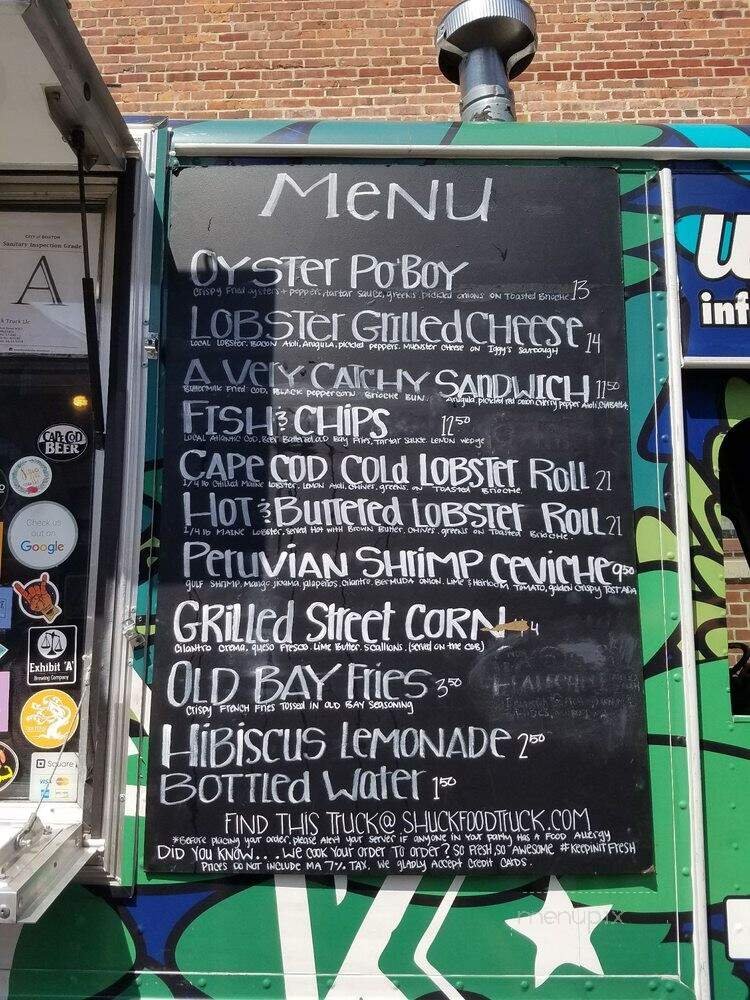 MENU
OYSTER PO'BOY
Crispy Fried oysters + peppers, tartar sauce, greens, pickled onions on Toasted Brioche 13
LOBSTER GRILLED CHEESE 14
LOCAL LOBSTER, BACON Aioli, Arugula, pickled peppers, MUENSTER CHEESE ON Iggy's Sourdough
A VERY CATCHY SANDWICH 11.50
BUTTERMILK Fried COD, BLACK peppercorn BRIOCHE BUN, Arugula, pickled red onion, cherry pepper Aioli,
FISH & CHIPS 12.50
LOCAL Atlantic COD, Beer Battered, OLD Bay Fries, TARTAR SAUCE, LEMON wedge
CAPE COD COLD LOBSTER ROLL 21
1/4 lb CHILLED MAINE LOBSTER, LEMON Aioli, CHIVES, greens, ON TOASTED BRIOCHE
HOT & BUTTERED LOBSTER ROLL 21
1/4 lb MAINE LOBSTER, served Hot with Brown Butter, CHIVES, greens on TOASTED BRIOCHE.
PERUVIAN SHRIMP CEVICHE 9.50
GULF SHRIMP, Mango, jicama, jalapeños, cilantro, BERMUDA ONION, Lime & Heirloom TOMATO, golden crispy TOSTADA
GRILLED STREET CORN 4
Cilantro crema, queso Fresco, Lime Butter, scallions, (served on the cob)
OLD BAY FRIES 3.50
Crispy FRENCH Fries TOSSED IN OLD BAY SEASONING
HIBISCUS LEMONADE 2.50
BOTTLED WATER 1.50
FIND THIS TRUCK@ SHUCKFOODTRUCK.COM
*Before placing your order, please Alert your server if anyone in your party has a FOOD Allergy
DID YOU KNOW... WE COOK YOUR ORDER TO ORDER? SO FRESH, SO AWESOME #KEEPINITFRESH
PRICES DO NOT INCLUDE MA 7% TAX. WE GLADLY ACCEPT CREDIT CARDS.
CITY OF BOSTON
Sanitary Inspection Grade
A
k Truck Llc
CAPE COD
BEER
Check us
out on
Google
Exhibit 'A'
Brewing Company
Square
VISA
inf
menupix